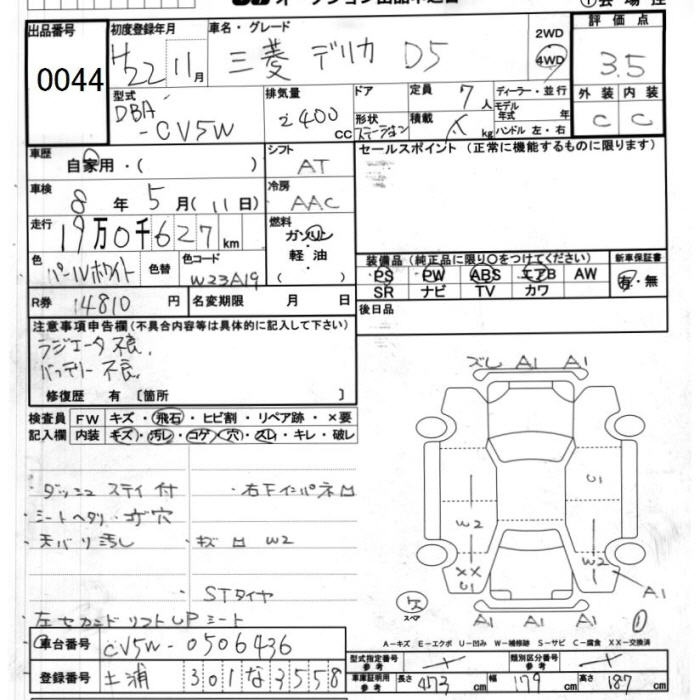 出品番号 初度登録年月 車名・グレード 2WD 評価点
0044 H22 11月 三菱 デリカ D5 4WD 3.5
型式 排気量 ドア 定員 7人 ディーラー・並行 外装 内装
DBA-CV5W 2400cc 形状 ステーション 積載 kg モデル年式 年 C C
ハンドル 左・右
車歴 シフト セールスポイント(正常に機能するものに限ります)
自家用・( ) AT
車検 冷房
8年 5月(11日) AAC
走行 燃料
19万0千627km ガソリン
軽油
( )
色 色替 色コード 装備品(純正品に限り○をつけてください) 新車保証書
パールホワイト W23A19 PS PW ABS エアB AW 有・無
SR ナビ TV カワ
R券 14810円 名変期限 月 日 後日品
注意事項申告欄(不具合内容等は具体的に記入して下さい)
ラジエータ 不良.
バッテリー 不良.
修復歴 有 [箇所 ]
ズレ A1 A1
検査員 FW キズ・飛石・ヒビ割・リペア跡・×要
記入欄 内装 キズ・汚レ・コゲ・穴・スレ・キレ・破レ
・ダッシュ ステイ付 ・右下インパネ凹
・シートヘタリ・コゲ穴
・天バリ汚し ・キズ凹 W2
STタイヤ
左セカンドリフトUPシート
C1
W2
W2
XX
C1
A1
スペア
A1 A1 A1
①
A-キズ E-エクボ U-凹み W-補修跡 S-サビ C-腐食 XX-交換済
車台番号 CV5W-0506436
登録番号 土浦 301 な 3558
型式指定番号 参考 類別区分番号 参考
車庫証明用 参考 長さ 473cm 幅 179cm 高さ 187cm